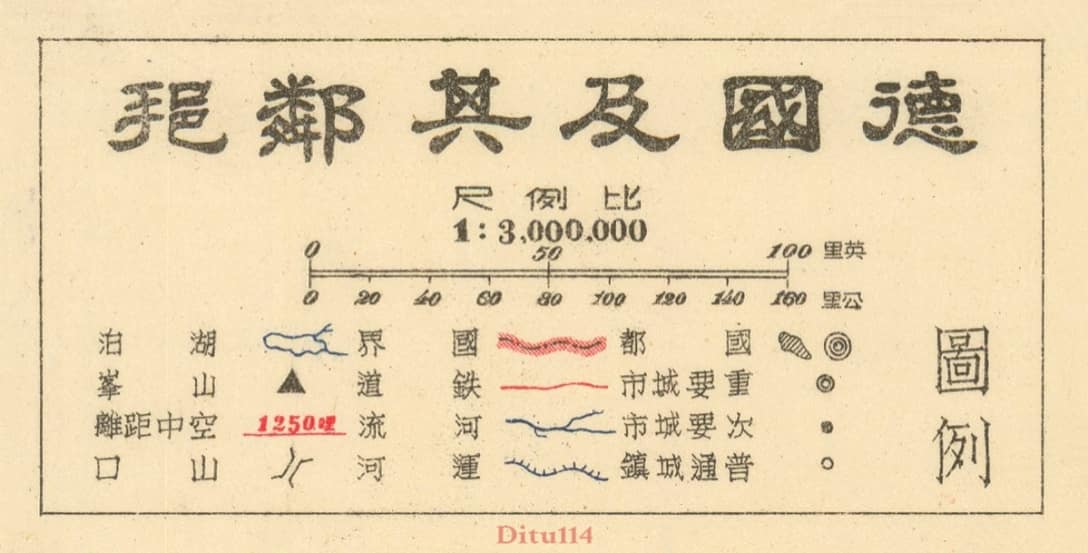 德國及其鄰邦
比例尺
1:3,000,000
0 50 100 英里
0 20 40 60 80 100 120 140 160 公里
圖例
國都 國界 湖泊
重要城市 鉄道 山峯
次要城市 河流 1250哩 空中距離
普通城鎮 運河 山口
Ditu114